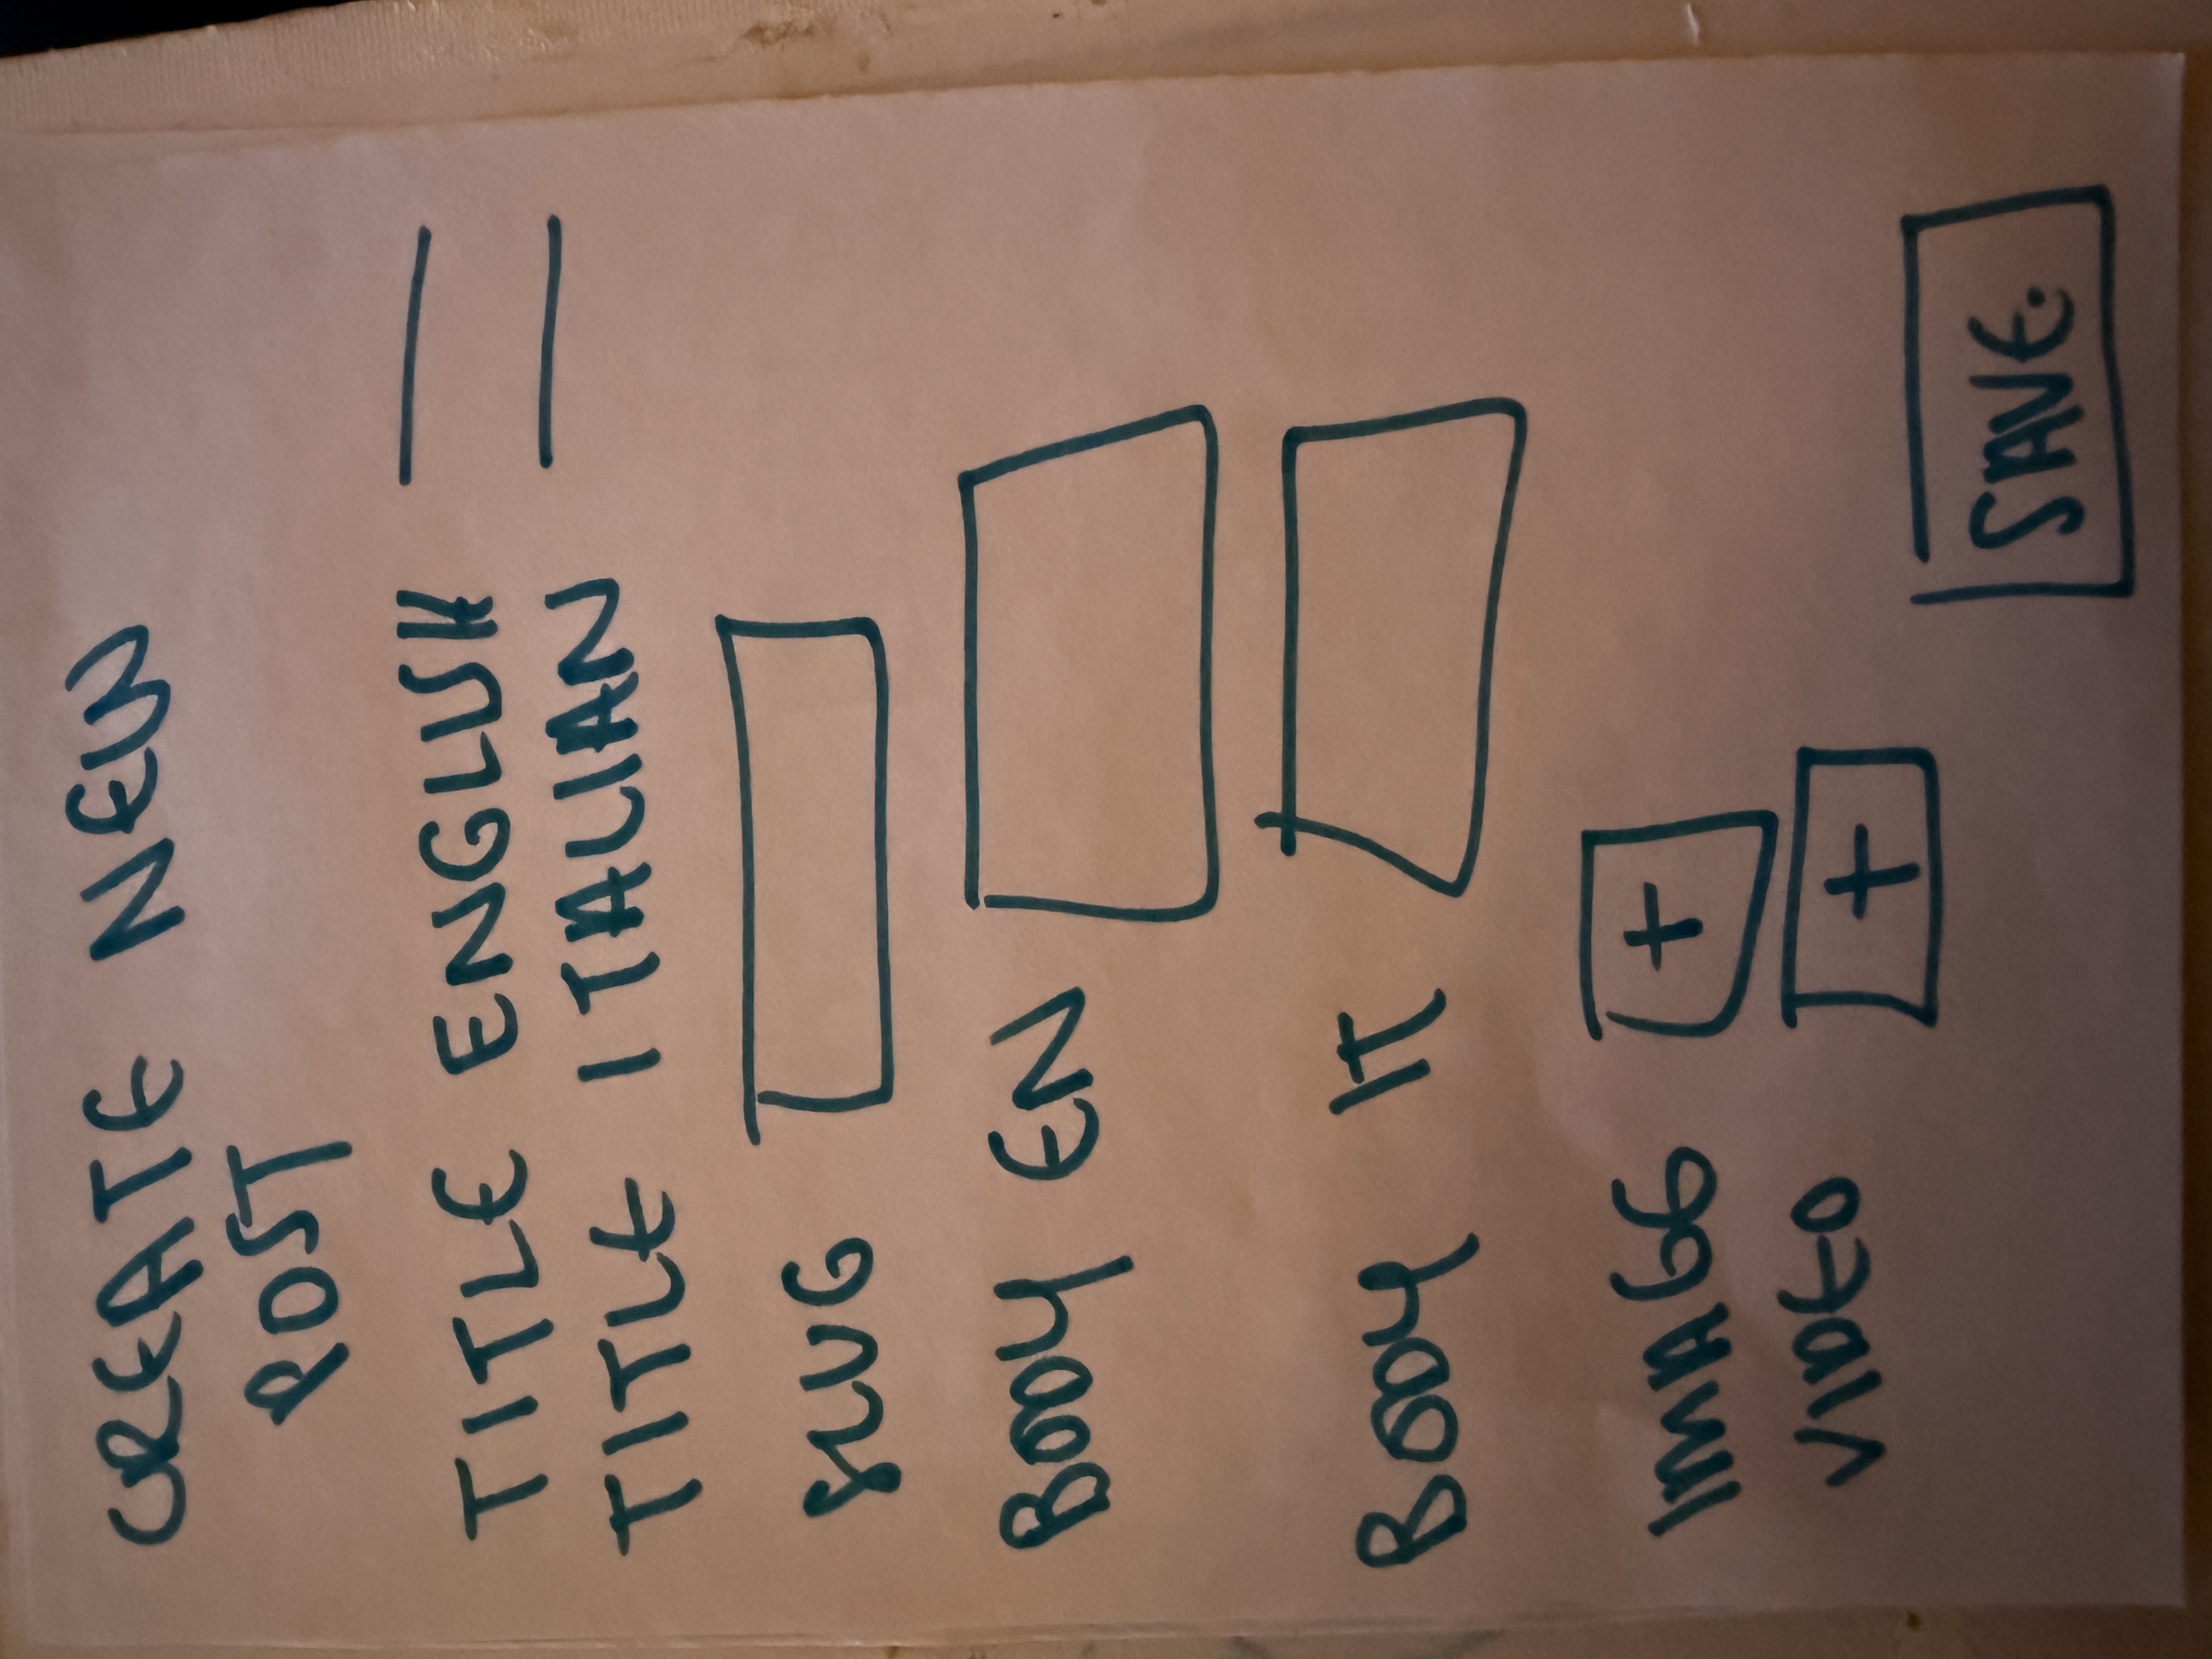 CREATE NEW
POST
TITLE ENGLISH
TITLE ITALIAN
SLUG
BODY EN
BODY IT
IMAGE
+
VIDEO
+
SAVE.